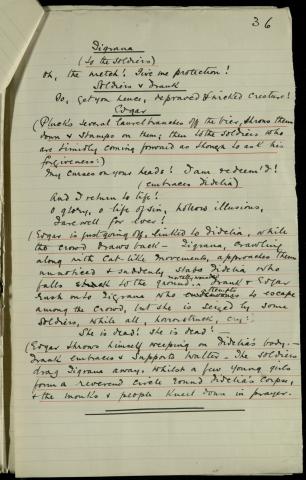 36
Tigrana
(to the soldiers)
Oh, the wretch! Give me protection!
Soldiers & Frank
Go, get you hence, depraved & wicked creature!
Edgar
(Plucks several laurel branches off the bier, throws them
down & stamps on them; then to the soldiers who
are timidly coming forward as though to ask his
forgiveness:)
My curses on your heads! I am redeem'd!
(embraces Fidelia)
And I return to life!
O glory, o life of sin, hollow illusions,
farewell for ever!
(Edgar is just going off, linked to Fidelia, while
the crowd draws back — Tigrana, crawling
along with cat-like movements, approaches them
unnoticed & suddenly stabs Fidelia who
falls to the ground. Frank & Edgar
mortally wounded
rush onto Tigrana who attempts to escape
among the crowd, but she is seized by some
soldiers, while all, horrorstruck, cry:
She is dead! she is dead! —
(Edgar throws himself weeping on Fidelia's body. —
Frank embraces & supports Walter — The soldiers
drag Tigrana away, whilst a few young girls
form a reverend circle round Fidelia's corpse,
& the monks & people kneel down in prayer.